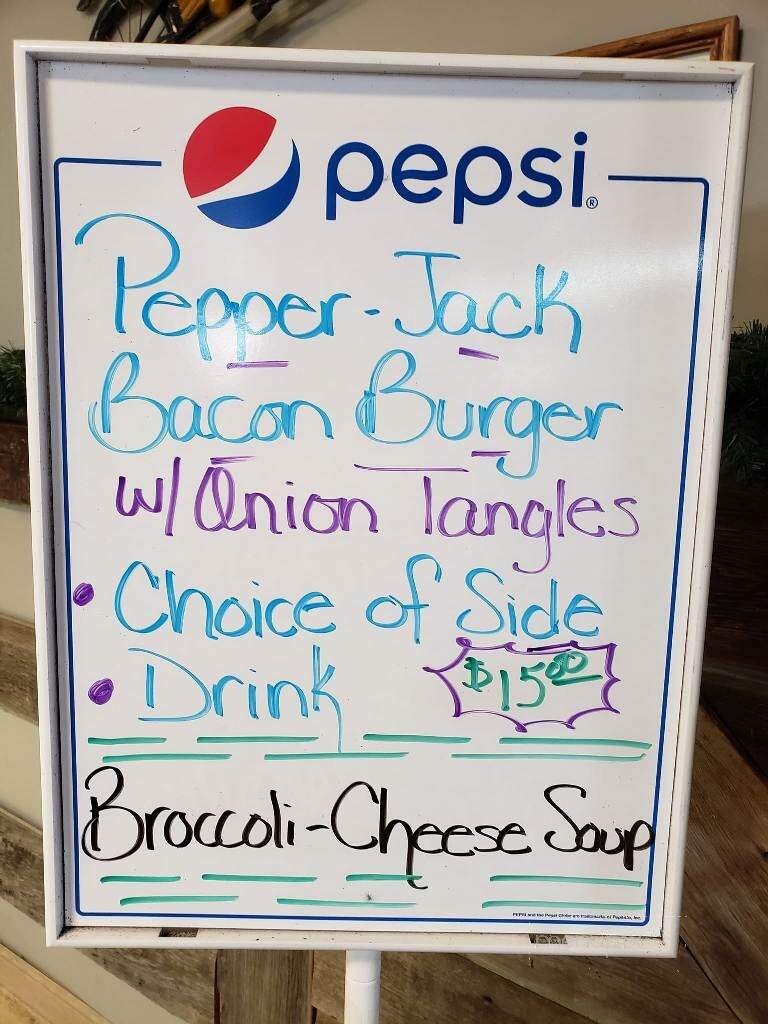 pepsi®
Pepper-Jack
Bacon Burger
w/ Onion Tangles
• Choice of Side
• Drink
$15.00
Broccoli-Cheese Soup
PEPSI and the Pepsi Globe are trademarks of PepsiCo, Inc.